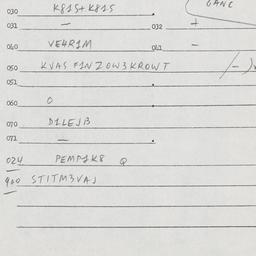 GANC
030 K81S+K81S
031 — 032 +
040 VE4R1M 041 —
050 KVAS F1NZOW3KROWT /—)
051
060 O
070 D1LEJB
071 —
024 PEMP1K8 Q
900 STITM3VAJ